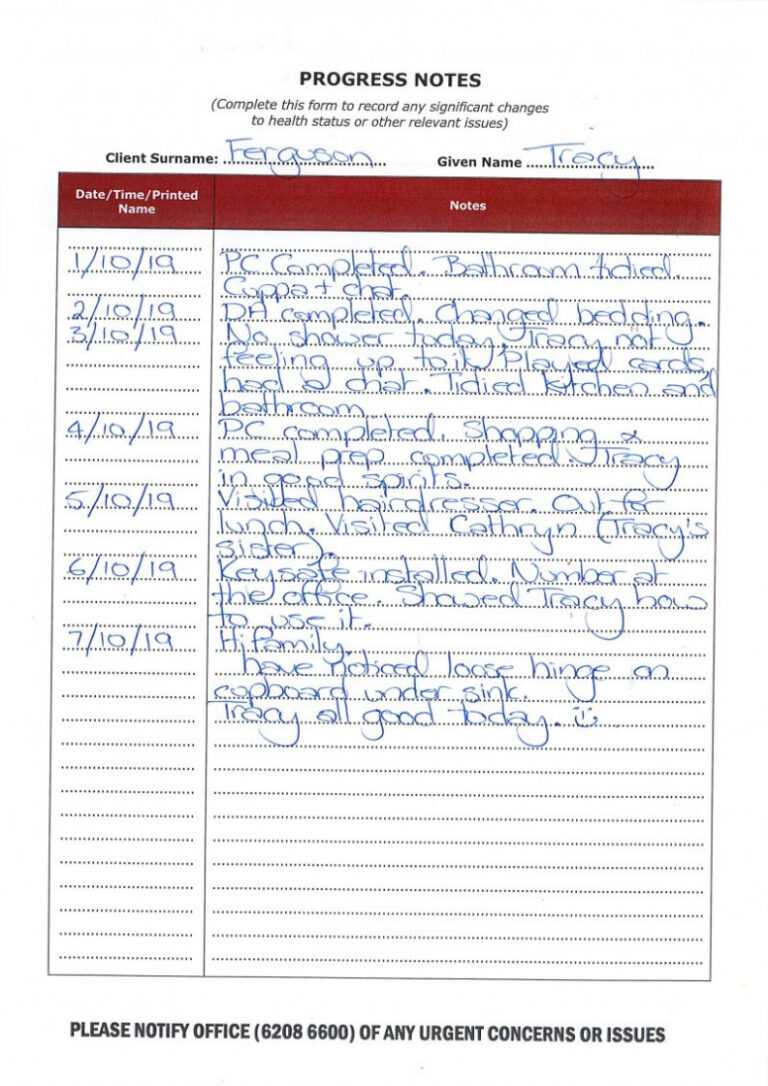 PROGRESS NOTES
(Complete this form to record any significant changes
to health status or other relevant issues)
Client Surname: Ferguson Given Name Tracy
Date/Time/Printed
Name
Notes
1/10/19 PC Completed. Bathroom tidied.
Cuppa + chat.
2/10/19 DA completed. Changed bedding.
3/10/19 No shower today. Tracy not
feeling up to it. Played cards,
had a chat. Tidied kitchen and
bathroom
4/10/19 PC completed. Shopping &
meal prep completed. Tracy
in good spirits.
5/10/19 Visited hairdresser. Out for
lunch. Visited Cathryn (Tracy's
sister).
6/10/19 Keysafe installed. Number at
the office. Showed Tracy how
to use it.
7/10/19 Hi family,
have noticed loose hinge on
cupboard under sink.
Tracy all good today. ☺
PLEASE NOTIFY OFFICE (6208 6600) OF ANY URGENT CONCERNS OR ISSUES